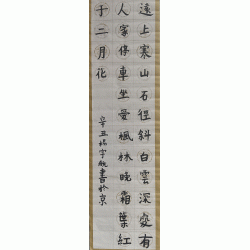 遠上寒山石徑斜白雲深處有
人家停車坐愛楓林晚霜葉紅
于二月花
辛丑宇書於京